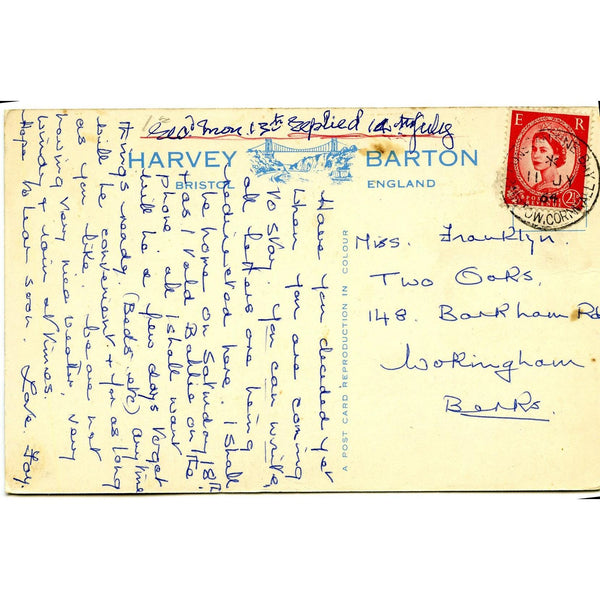 Recd Mon. 13th Replied 14th July
HARVEY BARTON
BRISTOL ENGLAND
A POST CARD REPRODUCTION IN COLOUR
Have you decided yet
when you are coming
to stay. You can write,
all letters are being
redirected here. I shall
be home on Saturday 18th
as I told Babbie on the
Phone. I shall want
a few days to get
things ready. (Beds etc) anytime
will be convenient & for as long
as you like. We are not
having very nice weather, very
windy & rain at times.
Hope to hear soon. Love. Fay.
E R
2½
11 JY
64
CORNWALL
Miss. Franklyn.
Two Oaks.
148. Barkham Rd
Wokingham
Berks.